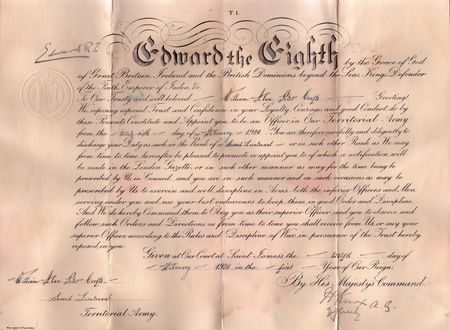 T.1.
Edward R.I.
Edward the Eighth by the Grace of God
of Great Britain, Ireland and the British Dominions beyond the Seas, King, Defender
of the Faith, Emperor of India, &c.
To Our Trusty and well beloved William Alan Greeting!
We reposing especial Trust and Confidence in your Loyalty, Courage, and good Conduct do by
these Presents Constitute and Appoint you to be an Officer in Our Territorial Army
from the day of February 1936. You are therefore carefully and diligently to
discharge your Duty as such in the Rank of Second Lieutenant or in such other Rank as We may
from time to time hereafter be pleased to promote or appoint you to, of which a notification will
be made in the London Gazette, or in such other manner as may for the time being be
prescribed by Us in Council, and you are in such manner and on such occasions as may be
prescribed by Us to exercise and well discipline in Arms, both the inferior Officers and Men
serving under you and use your best endeavours to keep them in good Order and Discipline.
And We do hereby Command them to Obey you as their superior Officer, and you to observe and
follow such Orders and Directions as from time to time you shall receive from Us, or any your
superior Officer, according to the Rules and Discipline of War, in pursuance of the Trust hereby
reposed in you.
Given at Our Court, at Saint James's, the day of
February 1936 in the first Year of Our Reign.
By His Majesty's Command.
William Alan
Second Lieutenant
Territorial Army.
A.G.